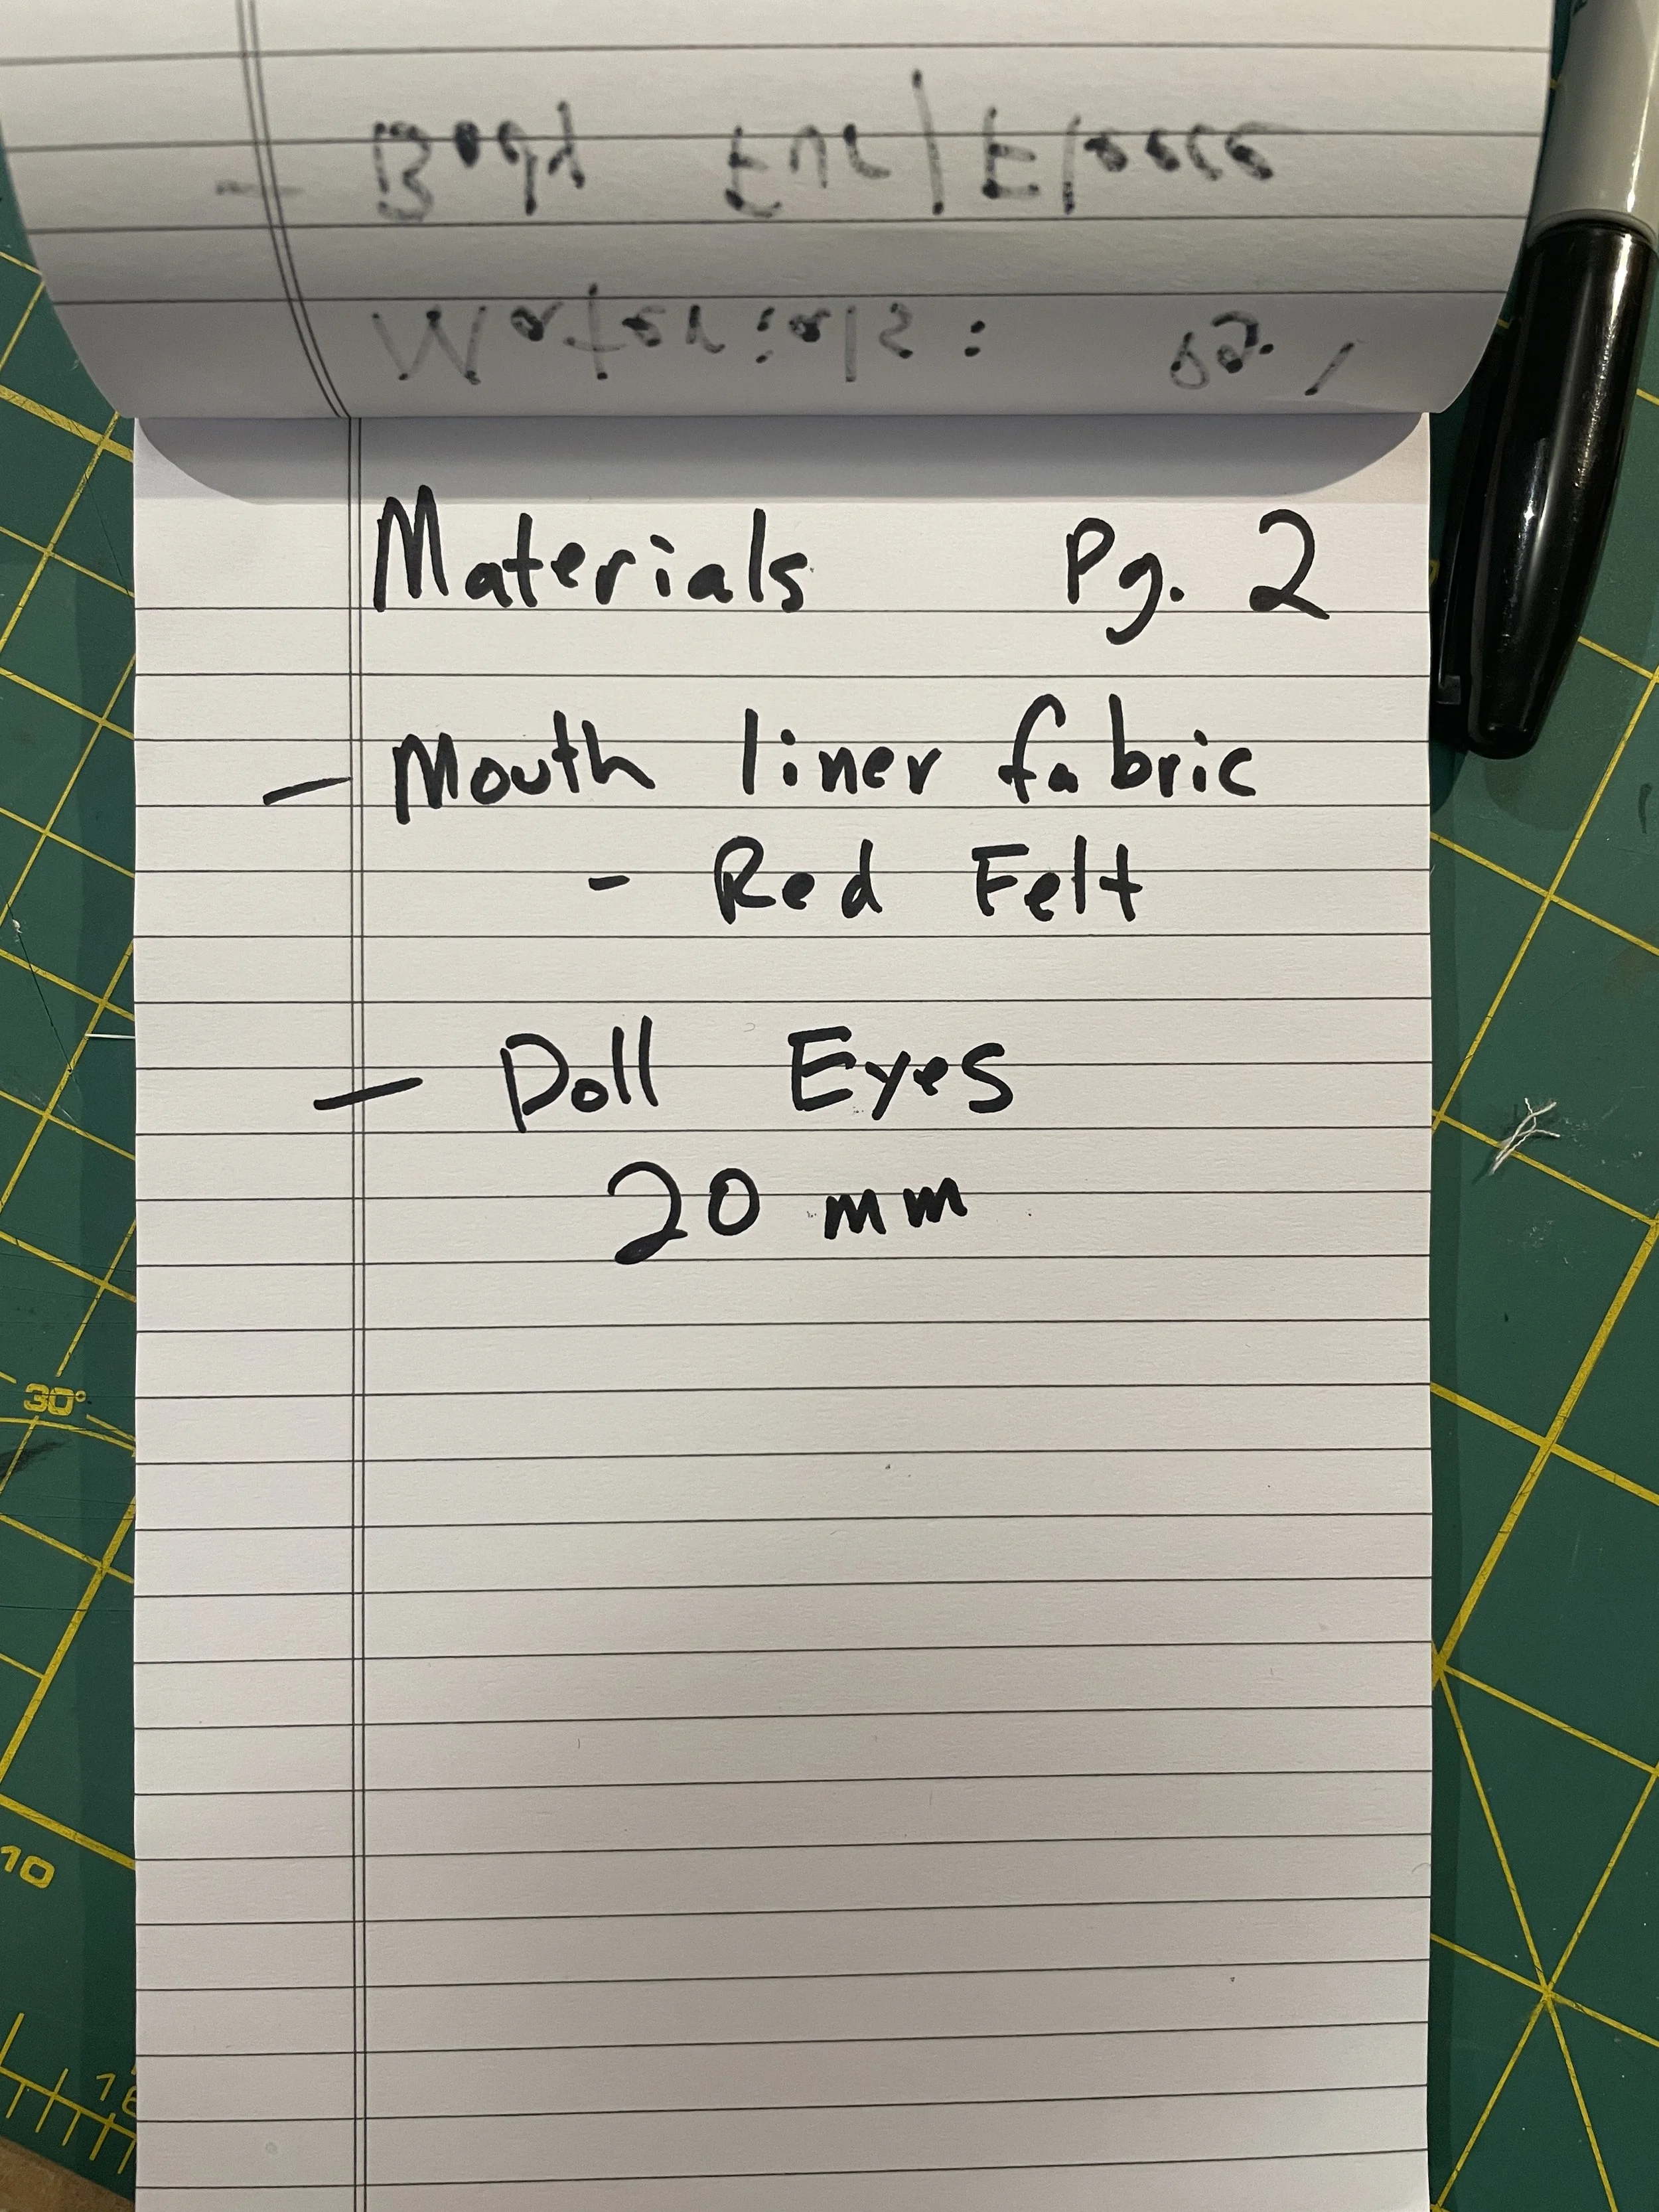 Materials: Pg. 1
Materials Pg. 2
- Mouth liner fabric
- Red Felt
- Doll Eyes
20 mm
30°
10